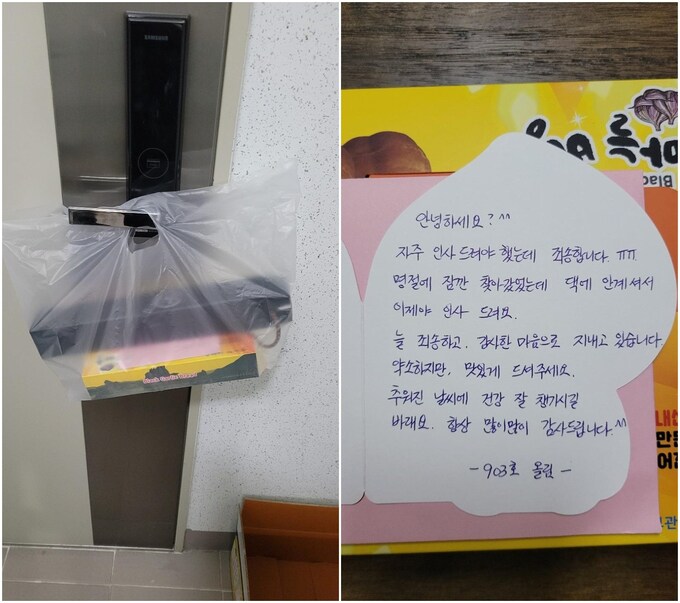 SAMSUNG
Black Garlic
Blac
안녕하세요? ^^
자주 인사 드려야 했는데 죄송합니다. ㅠㅠ
명절에 잠깐 찾아갔었는데 댁에 안계셔서
이제야 인사 드려요.
늘 죄송하고, 감사한 마음으로 지내고 있습니다.
약소하지만, 맛있게 드셔주세요.
추워진 날씨에 건강 잘 챙기시길
바래요. 항상 많이많이 감사드립니다.^^
- 903호 올림 -
만든